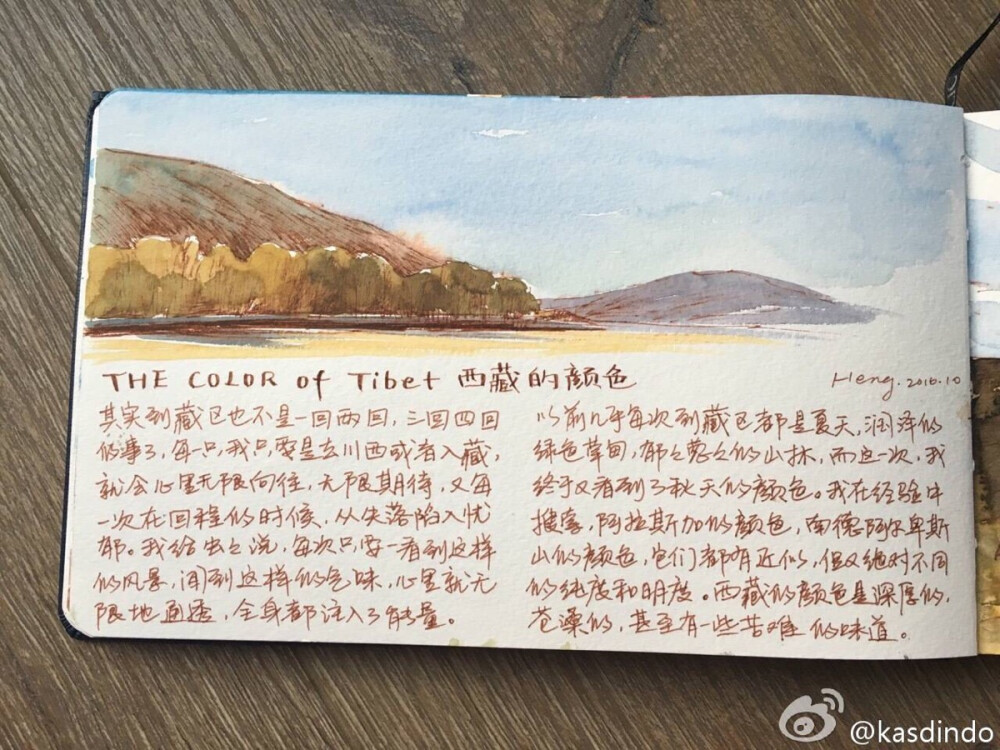 THE COLOR of Tibet 西藏的颜色
Heng. 2016.10
其实到藏区也不是一回两回，三回四回
的事了，每一只，我只要是去川西或者入藏，
就会心里无限向往，无限期待，又每
一次在回程的时候，从失落陷入忧
郁。我给虫虫说，每次只要一看到这样
的风景，闻到这样的气味，心里就无
限地通透，全身都注入了能量。
以前几乎每次到藏区都是夏天，润泽的
绿色草甸，郁郁葱葱的山林，而这一次，我
终于又看到了秋天的颜色。我在经验中
搜索，阿拉斯加的颜色，南德阿尔卑斯
山的颜色，它们都有近似，但又绝对不同
的纯度和明度。西藏的颜色是深厚的，
苍澡的，甚至有一些苦难的味道。
@kasdindo